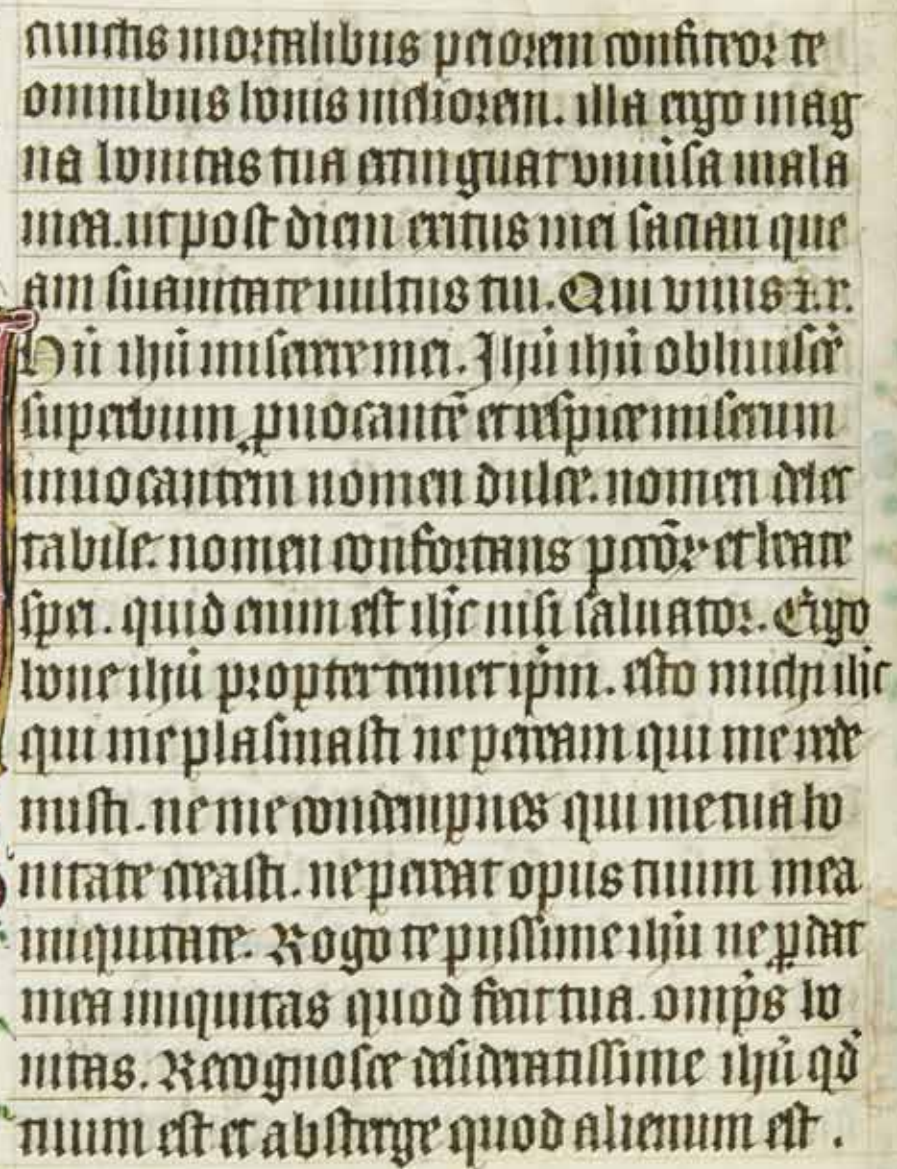 cunctis mortalibus peiorem confiteor te
omnibus bonis meliorem. illa ergo mag
na bonitas tua extinguat uniũsa mala
mea. ut post diem exitus mei saciari que
am suauitate uultus tui. Qui uiuis ⁊.r.
Hũ ihũ miserere mei. Ihũ ihũ obliuiscẽ
superbum ꝓuocantẽ et respice miserum
inuocantem nomen dulce. nomen delec
tabile. nomen confortans pctõꝝ et beate
spei. quid enim est ihc nisi saluator. Ergo
bone ihũ propter temet ip̃m. esto michi ihc
qui me plasmasti ne peream qui me rede
misti. ne me condempnes qui me tua bo
nitate creasti. ne pereat opus tuum mea
iniquitate. Rogo te piissime ihũ ne ꝑdat
mea iniquitas quod fecit tua. omp̃s bo
nitas. Recognosce desideratissime ihũ qđ
tuum est et absterge quod alienum est.